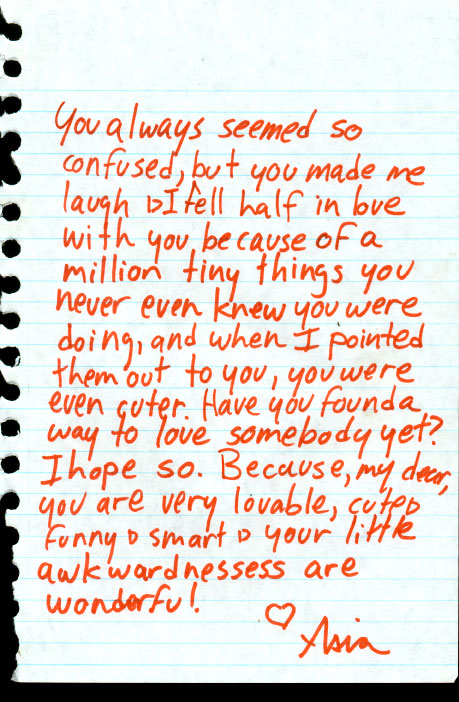 You always seemed so
confused, but you made me
laugh & I fell half in love
with you, because of a
million tiny things you
never even knew you were
doing, and when I pointed
them out to you, you were
even cuter. Have you found a
way to love somebody yet?
I hope so. Because, my dear,
you are very lovable, cute &
funny & smart & your little
awkwardnessess are
wonderful.
♡ Asia